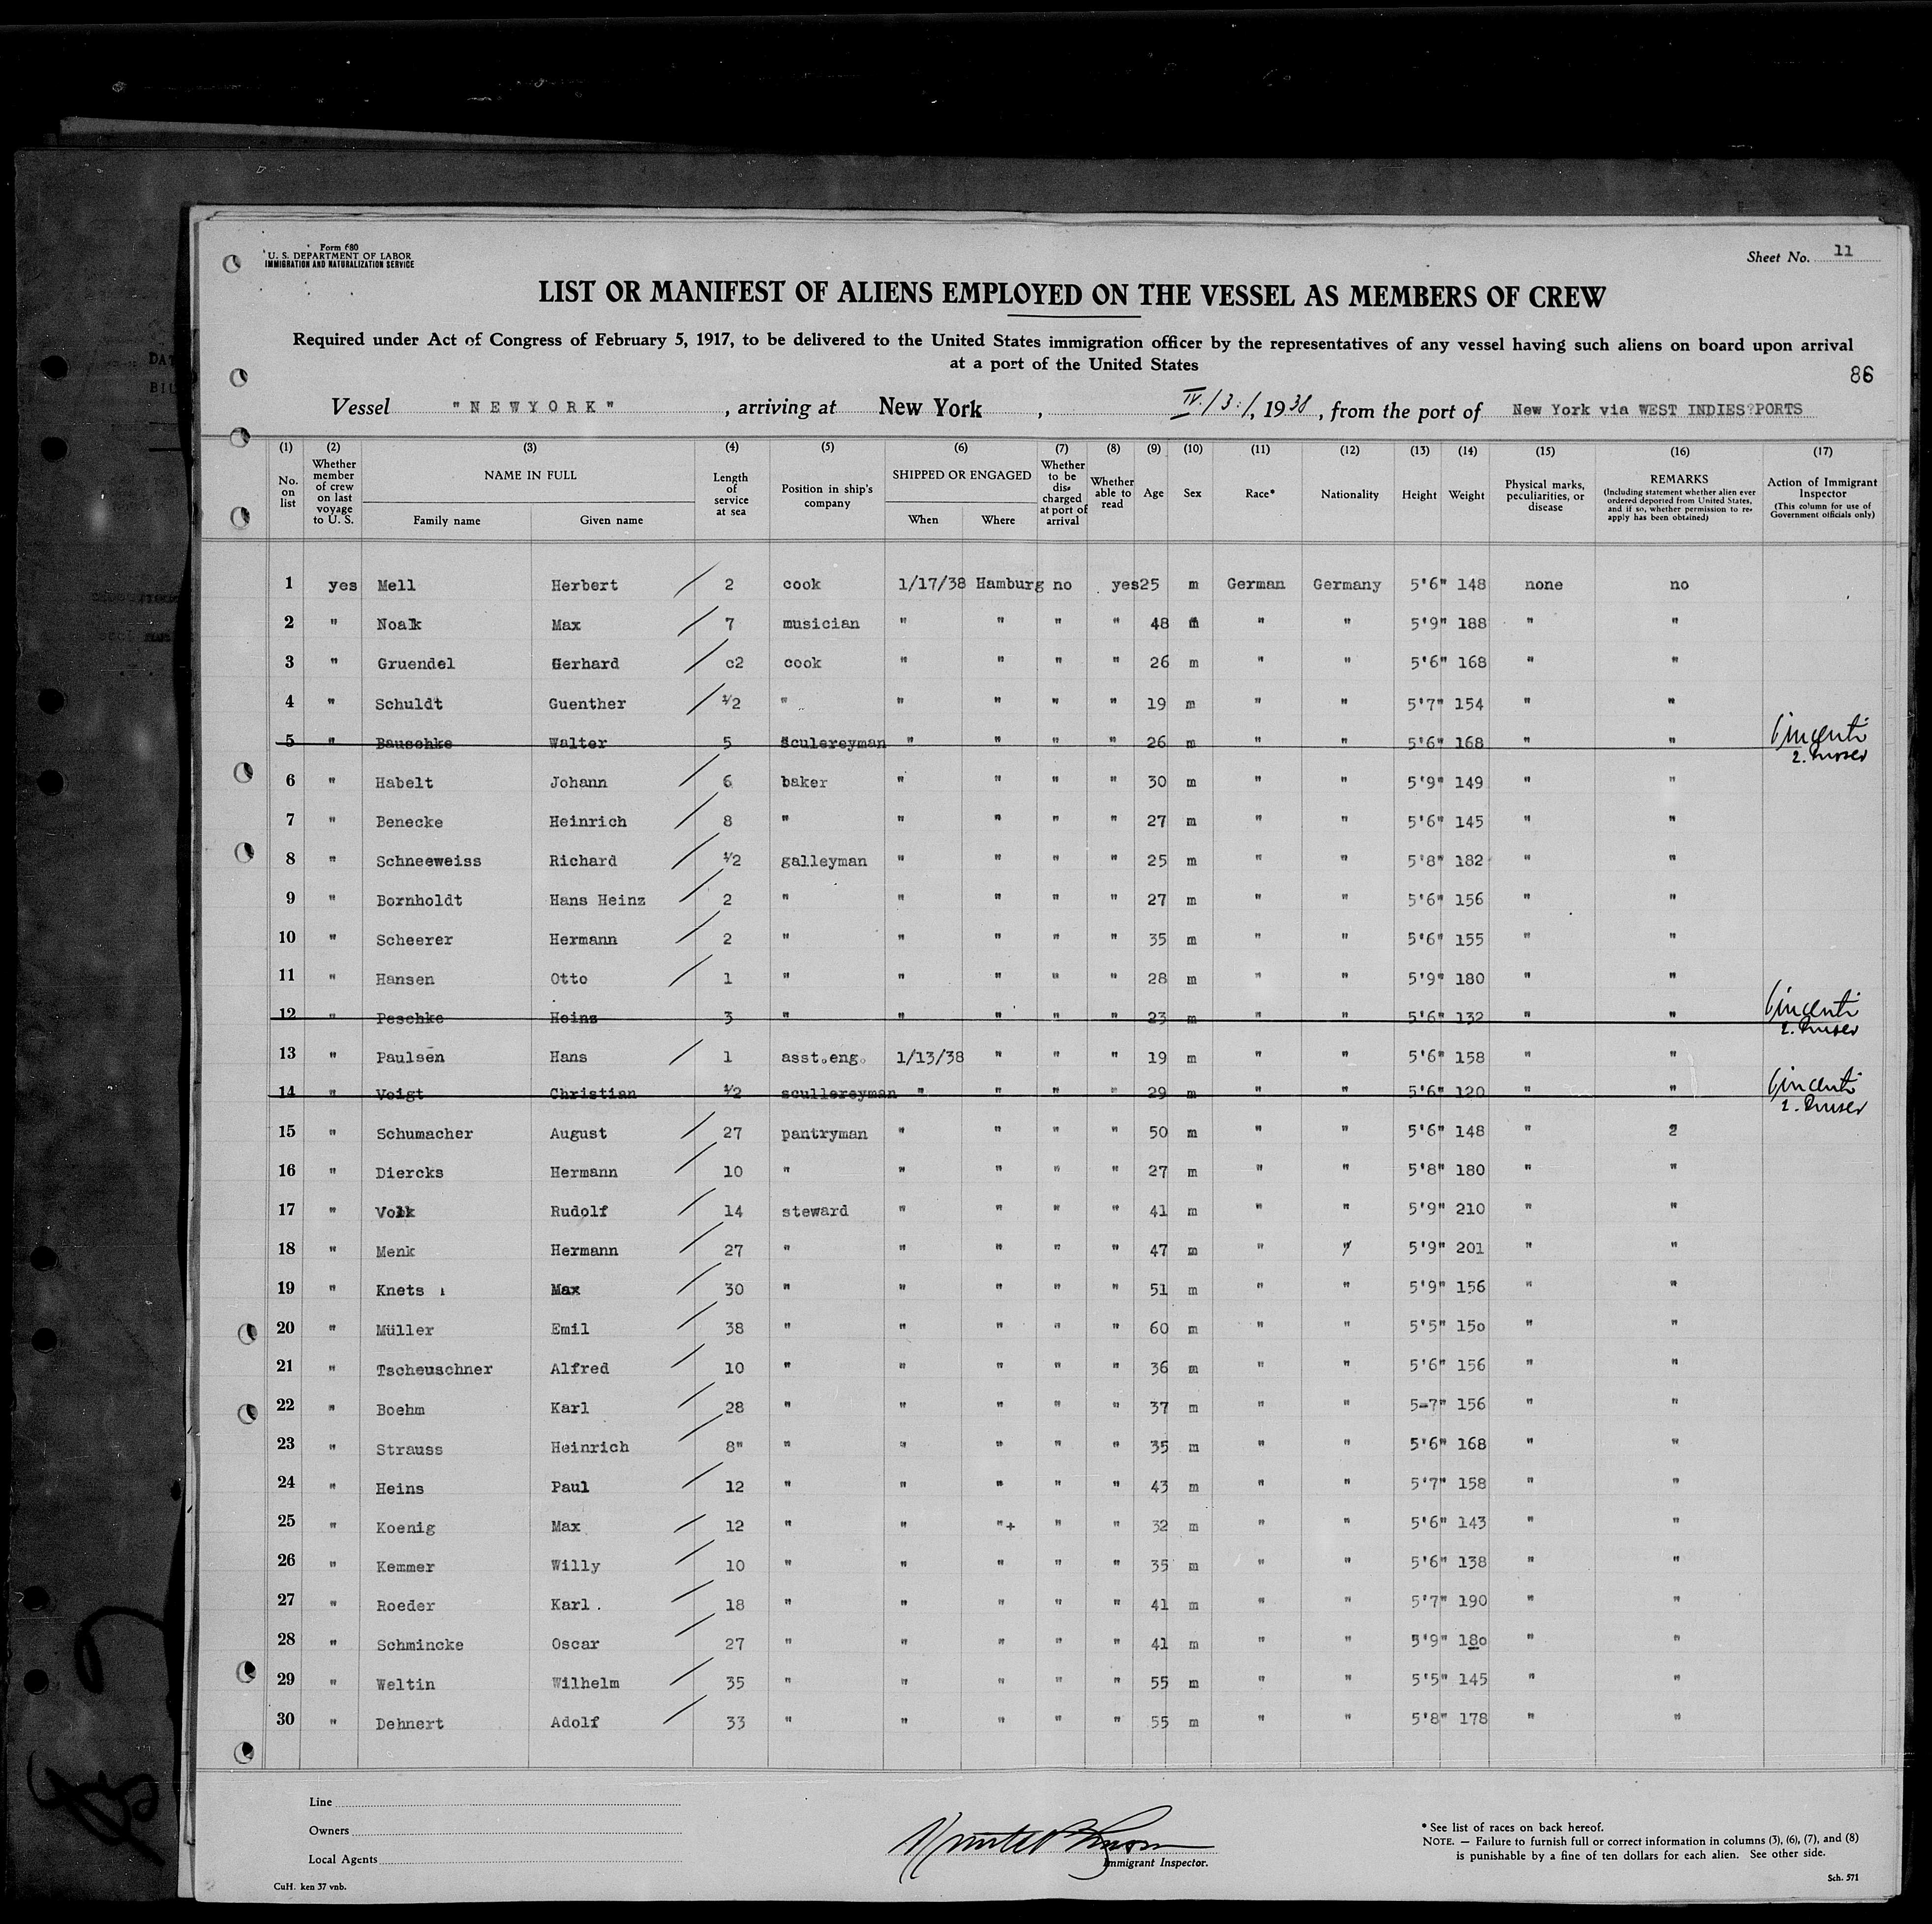 Form 680
U. S. DEPARTMENT OF LABOR
IMMIGRATION AND NATURALIZATION SERVICE
Sheet No. 11
LIST OR MANIFEST OF ALIENS EMPLOYED ON THE VESSEL AS MEMBERS OF CREW
Required under Act of Congress of February 5, 1917, to be delivered to the United States immigration officer by the representatives of any vessel having such aliens on board upon arrival
at a port of the United States
86
Vessel "NEWYORK", arriving at New York, IV./3:/, 1938, from the port of New York via WEST INDIES PORTS
(1) (2) (3) (4) (5) (6) (7) (8) (9) (10) (11) (12) (13) (14) (15) (16) (17)
No. on list
Whether member of crew on last voyage to U. S.
NAME IN FULL
Family name Given name
Length of service at sea
Position in ship's company
SHIPPED OR ENGAGED
When Where
Whether to be discharged at port of arrival
Whether able to read
Age
Sex
Race*
Nationality
Height
Weight
Physical marks, peculiarities, or disease
REMARKS
(Including statement whether alien ever ordered deported from United States, and if so, whether permission to reapply has been obtained)
Action of Immigrant Inspector
(This column for use of Government officials only)
1 yes Mell Herbert / 2 cook 1/17/38 Hamburg no yes 25 m German Germany 5'6" 148 none no
2 " Noak Max / 7 musician " " " " 48 m " " 5'9" 188 " "
3 " Gruendel Gerhard / c2 cook " " " " 26 m " " 5'6" 168 " "
4 " Schuldt Guenther / 1/2 " " " " " 19 m " " 5'7" 154 " "
5 " Bauschke Walter 5 Sculereyman " " " " 26 m " " 5'6" 168 " "
6 " Habelt Johann / 6 baker " " " " 30 m " " 5'9" 149 " "
7 " Benecke Heinrich / 8 " " " " " 27 m " " 5'6" 145 " "
8 " Schneeweiss Richard / 1/2 galleyman " " " " 25 m " " 5'8" 182 " "
9 " Bornholdt Hans Heinz / 2 " " " " " 27 m " " 5'6" 156 " "
10 " Scheerer Hermann / 2 " " " " " 35 m " " 5'6" 155 " "
11 " Hansen Otto / 1 " " " " " 28 m " " 5'9" 180 " "
12 " Peschke Heinz 3 " " " " " 23 m " " 5'6" 132 " "
13 " Paulsen Hans / 1 asst.eng. 1/13/38 " " " 19 m " " 5'6" 158 " "
14 " Voigt Christian 1/2 scullereyman " " " " 29 m " " 5'6" 120 " "
15 " Schumacher August / 27 pantryman " " " " 50 m " " 5'6" 148 " 2
16 " Diercks Hermann / 10 " " " " " 27 m " " 5'8" 180 " "
17 " Volk Rudolf / 14 steward " " " " 41 m " " 5'9" 210 " "
18 " Menk Hermann / 27 " " " " " 47 m " " 5'9" 201 " "
19 " Knets Max / 30 " " " " " 51 m " " 5'9" 156 " "
20 " Müller Emil / 38 " " " " " 60 m " " 5'5" 15o " "
21 " Tscheuschner Alfred / 10 " " " " " 36 m " " 5'6" 156 " "
22 " Boehm Karl / 28 " " " " " 37 m " " 5-7" 156 " "
23 " Strauss Heinrich / 8" " " " " " 35 m " " 5'6" 168 " "
24 " Heins Paul / 12 " " " " " 43 m " " 5'7" 158 " "
25 " Koenig Max / 12 " " "+ " " 32 m " " 5'6" 143 " "
26 " Kemmer Willy / 10 " " " " " 35 m " " 5'6" 138 " "
27 " Roeder Karl . / 18 " " " " " 41 m " " 5'7" 190 " "
28 " Schmincke Oscar / 27 " " " " " 41 m " " 5'9" 18o " "
29 " Weltin Wilhelm / 35 " " " " " 55 m " " 5'5" 145 " "
30 " Dehnert Adolf / 33 " " " " " 55 m " " 5'8" 178 " "
Line
Owners
Local Agents
Immigrant Inspector.
* See list of races on back hereof.
NOTE. — Failure to furnish full or correct information in columns (3), (6), (7), and (8)
is punishable by a fine of ten dollars for each alien. See other side.
CuH. ken 37 vnb.
Sch. 571